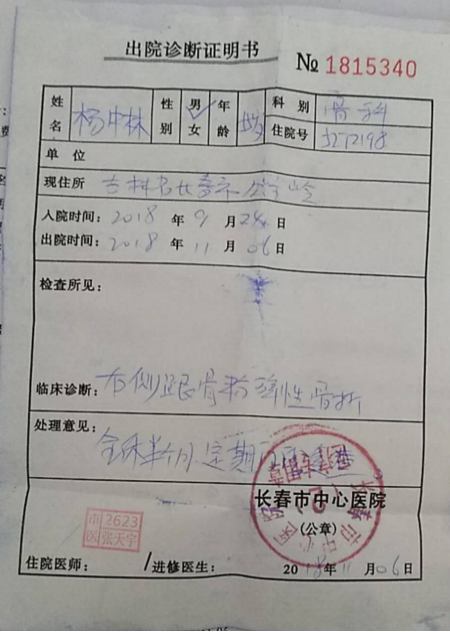 出院诊断证明书
№ 1815340
姓名 杨中林 性别 男 女 年龄 岁 科别 骨科
住院号 3272198
单位
现住所 吉林省长春市公主岭
入院时间: 2018 年 9 月 24 日
出院时间: 2018 年 11 月 06 日
检查所见:
临床诊断: 右侧跟骨粉碎性骨折
处理意见:
全休半月 定期
长春市中心医院
(公章)
市医 2623 张天宇
住院医师: /进修医生: 2018年 11 月 06 日